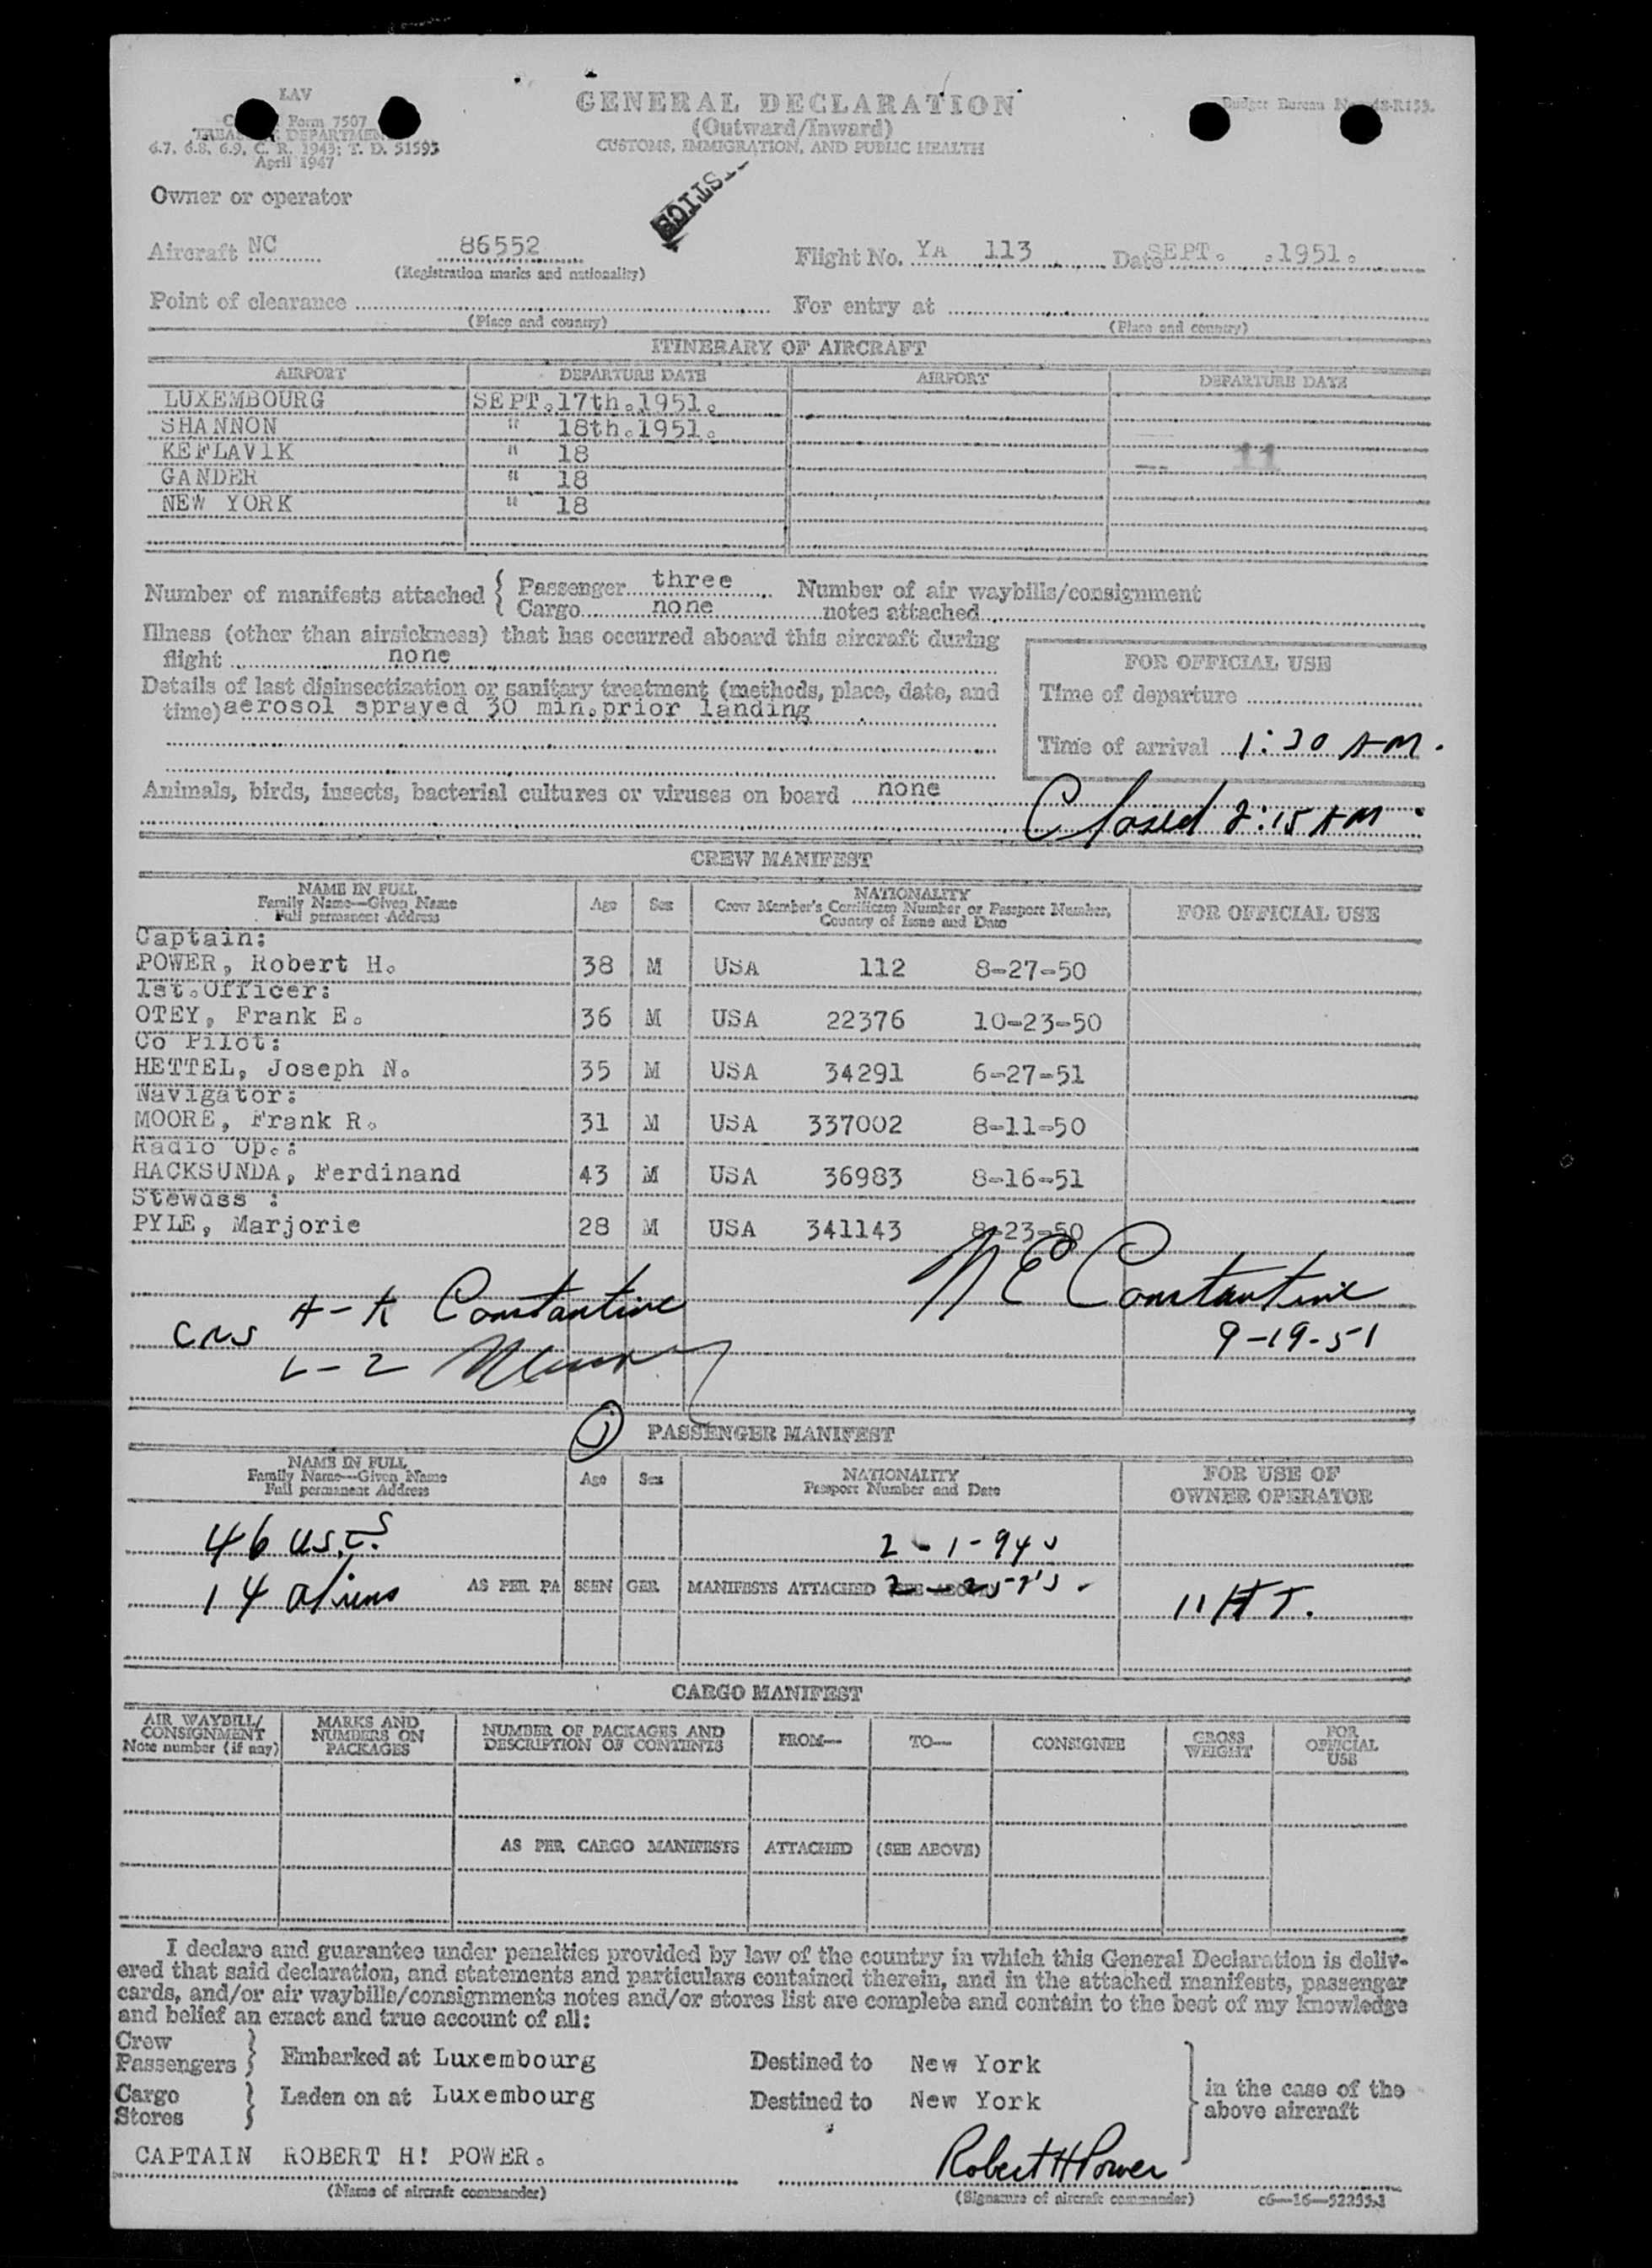 LAV
GENERAL DECLARATION
(Outward/Inward)
CUSTOMS, IMMIGRATION, AND PUBLIC HEALTH
Budget Bureau No. 48-R155.
Form 7507
TREASURY DEPARTMENT
6.7, 6.8, 6.9, C. R. 1943; T. D. 51595
April 1947
Owner or operator
Aircraft NC 86552 Flight No. YA 113 Date SEPT. .1951.
(Registration marks and nationality)
Point of clearance For entry at
(Place and country) (Place and country)
ITINERARY OF AIRCRAFT
AIRPORT DEPARTURE DATE AIRPORT DEPARTURE DATE
LUXEMBOURG SEPT.17th.1951.
SHANNON " 18th.1951.
KEFLAVIK " 18 11
GANDER " 18
NEW YORK " 18
Number of manifests attached { Passenger three Number of air waybills/consignment
Cargo none notes attached
Illness (other than airsickness) that has occurred aboard this aircraft during
flight none
FOR OFFICIAL USE
Details of last disinsectization or sanitary treatment (methods, place, date, and
time) aerosol sprayed 30 min.prior landing
Time of departure
Time of arrival 1:30 AM.
Animals, birds, insects, bacterial cultures or viruses on board none
Closed 2:15 AM
CREW MANIFEST
NAME IN FULL
Family Name—Given Name
Full permanent Address
Age Sex
NATIONALITY
Crew Member's Certificate Number or Passport Number,
Country of Issue and Date
FOR OFFICIAL USE
Captain:
POWER, Robert H. 38 M USA 112 8-27-50
1st.Officer:
OTEY, Frank E. 36 M USA 22376 10-23-50
Co Pilot:
HETTEL, Joseph N. 35 M USA 34291 6-27-51
Navigator:
MOORE, Frank R. 31 M USA 337002 8-11-50
Radio Op.:
HACKSUNDA, Ferdinand 43 M USA 36983 8-16-51
Stewass :
PYLE, Marjorie 28 M USA 341143 8-23-50
A-K Constantine
N E Constantine
9-19-51
L-2
PASSENGER MANIFEST
NAME IN FULL
Family Name—Given Name
Full permanent Address
Age Sex
NATIONALITY
Passport Number and Date
FOR USE OF
OWNER OPERATOR
46 USCS 2-1-94s
14 aliens AS PER PASSENGER MANIFESTS ATTACHED 11 HT.
CARGO MANIFEST
AIR WAYBILL/
CONSIGNMENT
Note number (if any)
MARKS AND
NUMBERS ON
PACKAGES
NUMBER OF PACKAGES AND
DESCRIPTION OF CONTENTS
FROM— TO— CONSIGNEE
GROSS
WEIGHT
FOR
OFFICIAL
USE
AS PER CARGO MANIFESTS ATTACHED (SEE ABOVE)
I declare and guarantee under penalties provided by law of the country in which this General Declaration is deliv-
ered that said declaration, and statements and particulars contained therein, and in the attached manifests, passenger
cards, and/or air waybills/consignments notes and/or stores list are complete and contain to the best of my knowledge
and belief an exact and true account of all:
Crew
Passengers } Embarked at Luxembourg Destined to New York
Cargo
Stores } Laden on at Luxembourg Destined to New York
in the case of the
above aircraft
CAPTAIN ROBERT H! POWER. Robert H Power
(Name of aircraft commander) (Signature of aircraft commander) c6—16—52235-1